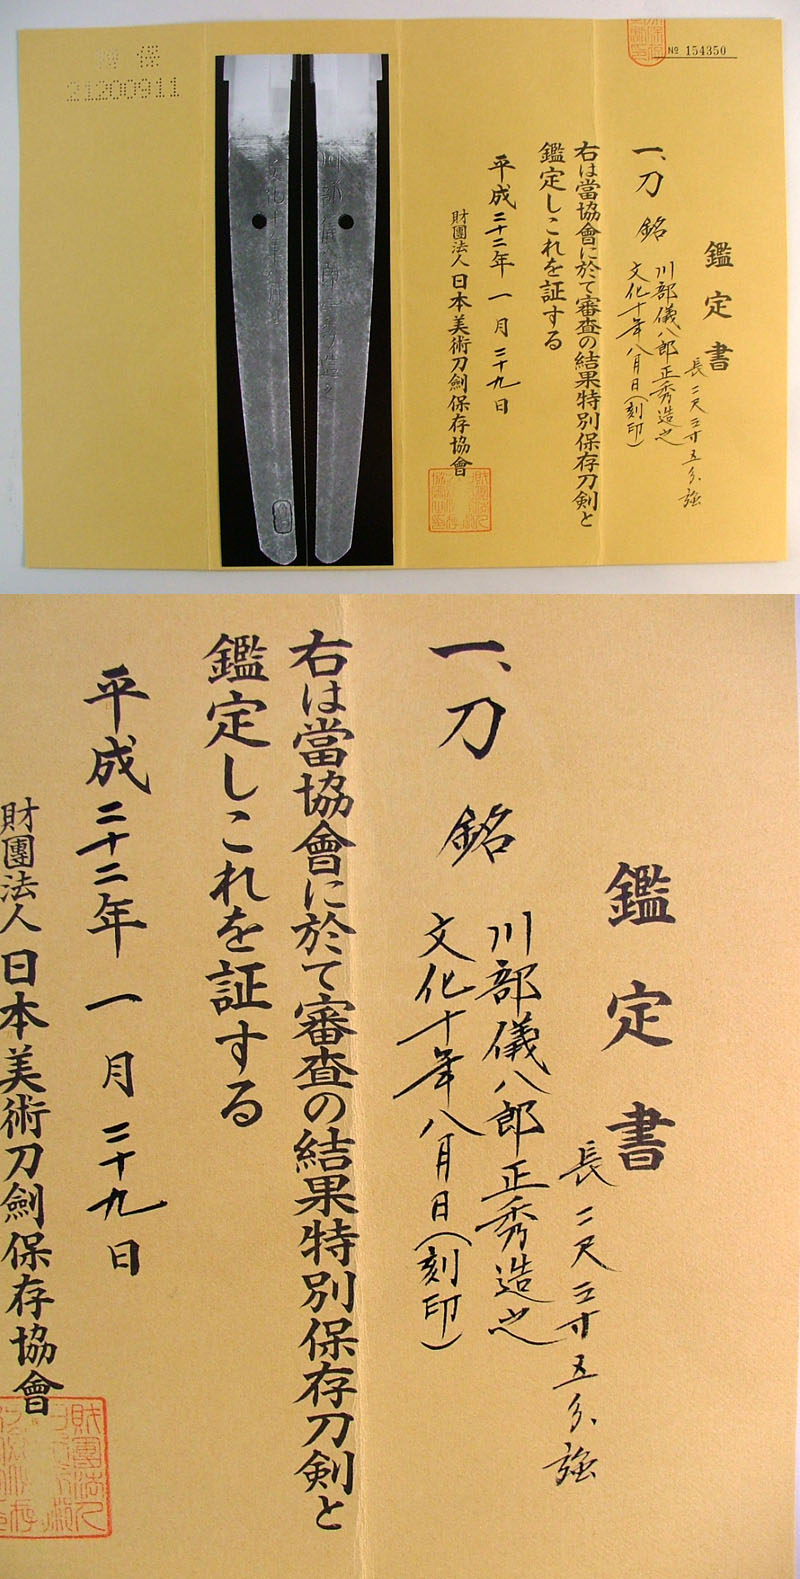 № 154350
鑑定書
一、刀 銘 川部儀八郎正秀造之
文化十年八月日(刻印)
長二尺三寸五分強
右は當協會に於て審査の結果特別保存刀剣と
鑑定しこれを証する
平成二十二年一月二十九日
財團法人日本美術刀劍保存協會
21200911
鑑定書
長二尺三寸五分強
一、刀 銘 川部儀八郎正秀造之
文化十年八月日(刻印)
右は當協會に於て審査の結果特別保存刀剣と
鑑定しこれを証する
平成二十二年一月二十九日
財團法人日本美術刀劍保存協會